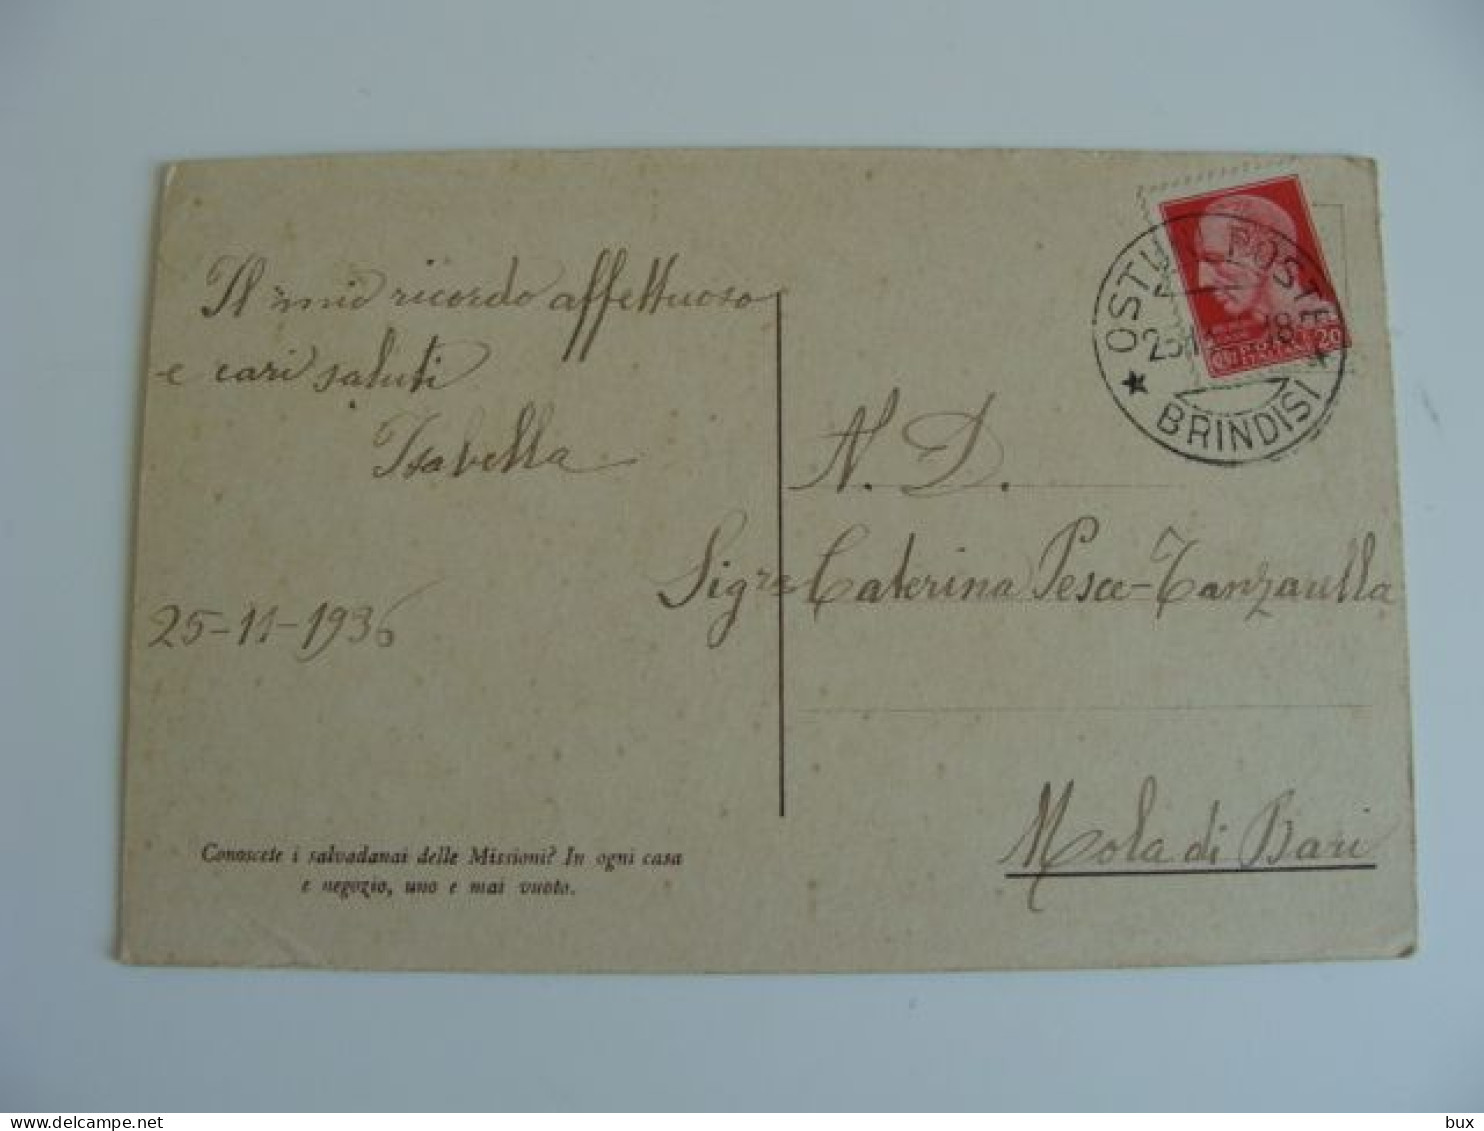 Il mio ricordo affettuoso
e cari saluti
Isabella
25-11-1936
Conoscete i salvadanai delle Missioni? In ogni casa
e negozio, uno e mai vuoto.
OSTU POSTE
BRINDISI
20
N. D.
Sig.ra Caterina Pesce-Tanzarella
Mola di Bari
bux